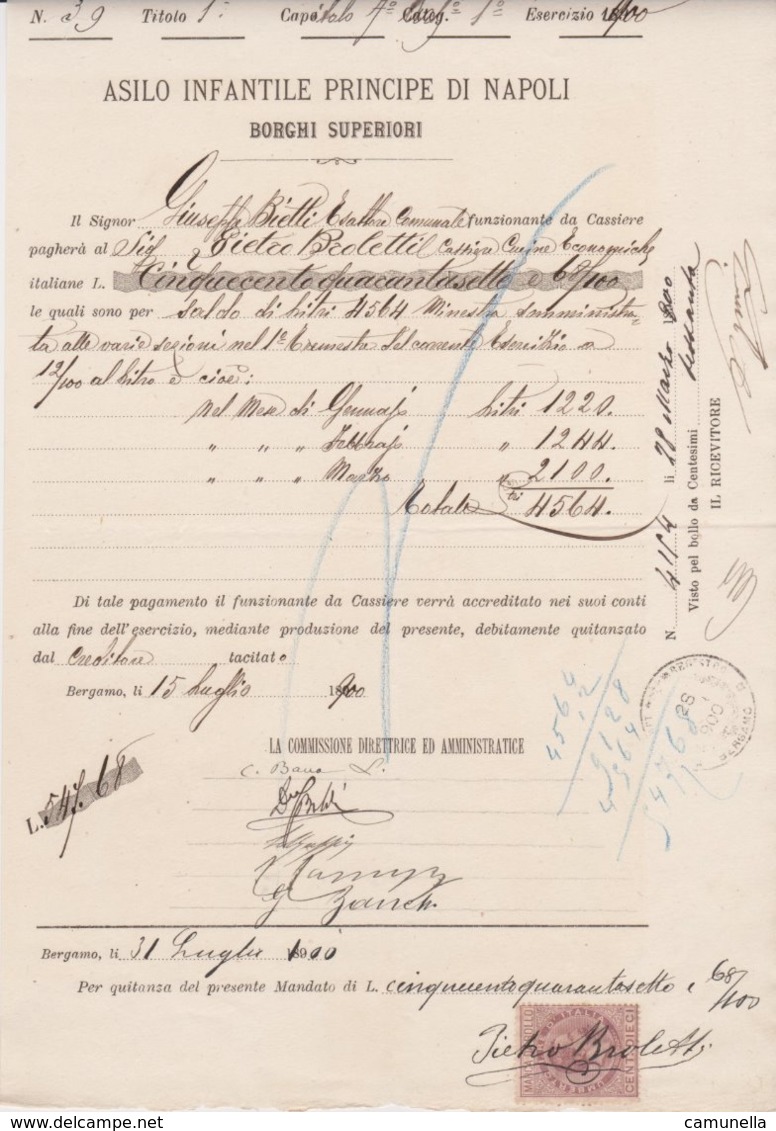 N. 39 Titolo 1° Capitolo 7° Categ. 1° Esercizio 1900
ASILO INFANTILE PRINCIPE DI NAPOLI
BORGHI SUPERIORI
Il Signor Giuseppe Bietti Esattore Comunale funzionante da Cassiere
pagherà al Sig Pietro Broletti Cassiere Cucine Economiche
italiane L. Cinquecentoquarantasette e 68/100
le quali sono per saldo di litri 4564 Minestra somministra-
ta alle varie sezioni nel 1° Trimestre del corrente Esercizio a
12/100 al litro e cioè:
nel Mese di Gennajo litri 1220.
" " " Febbrajo " 1244.
" " " Marzo " 2100.
Totale litri 4564.
Di tale pagamento il funzionante da Cassiere verrà accreditato nei suoi conti
alla fine dell'esercizio, mediante produzione del presente, debitamente quitanzato
dal creditore tacitato
Bergamo, li 15 Luglio 1900
LA COMMISSIONE DIRETTRICE ED AMMINISTRATICE
L. 547.68
G Zanch
Bergamo, li 31 Luglio 1900
Per quitanza del presente Mandato di L. cinquecentoquarantasette e 68/100
Pietro Broletti
N. 4154 li 28 Marzo 1900
Visto pel bollo da Centesimi sessanta
IL RICEVITORE
4564
12
9128
4564
54768
BERGAMO
28
900
MARCA DA BOLLO
D'ITALIA
CENT. DIECI
camunella